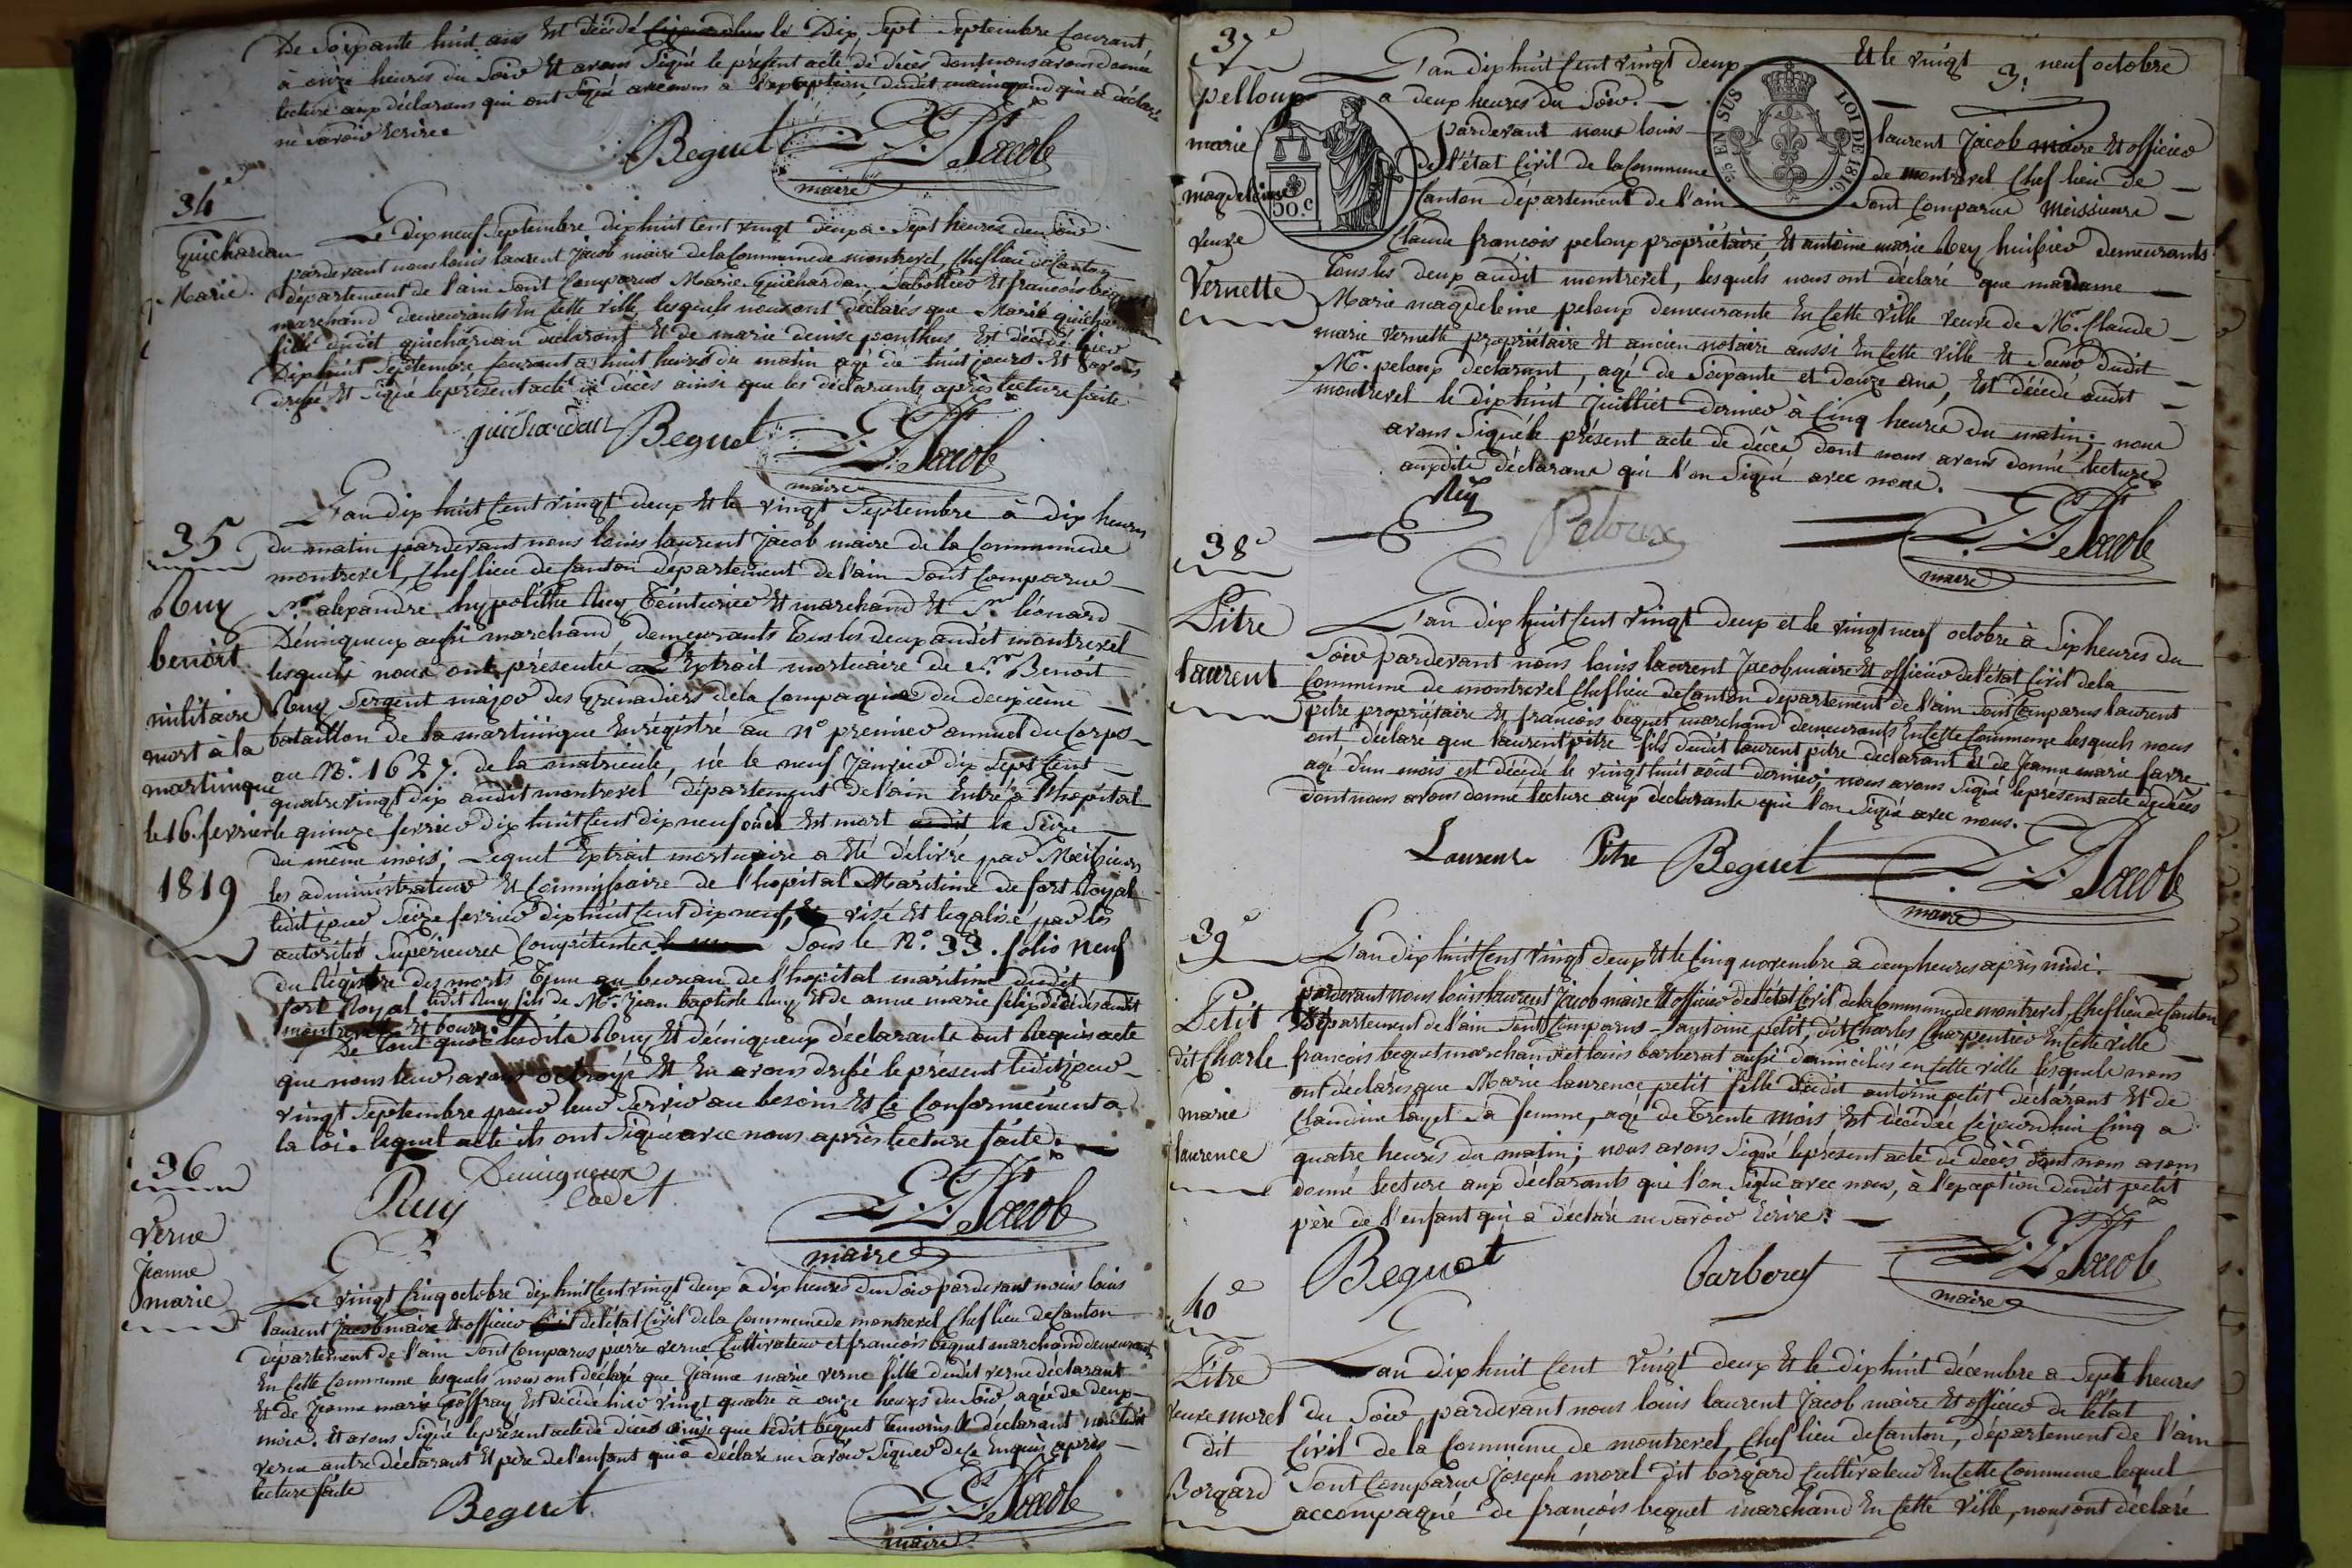 De Soixante huit ans Est décédé le Dix Sept Septembre Courant
à onze heures du Soir Et avons Signé le présent acte de décès dont nous avons donné
lecture aux déclarans qui ont Signé avec nous à l'exception dudit qui a déclaré
ne Savoir Ecrire
Beguet L. L. Jacob
maire
34e
Guichardan
Marie
Le dix neuf Septembre dix huit Cent vingt deux a Sept heures du Soir
pardevant nous louis laurent Jacob maire de la Commune de montrevel, Chef lieu de Canton
département de l'ain Sont Comparus Marie Guichardan Sabottier Et francois beguet
marchand demeurants En Cette ville, lesquels nous ont déclarés que Marie guichardan
fille dudit guichardan déclarant Et de marie denise ponthus Est décédé hier
Dix huit Septembre Courant a huit heures du matin agé de huit jours. Et avons
dressé Et Signé le présent acte de décès ainsi que les déclarants après lecture faite
guichardan Beguet L. L. Jacob
maire
35
Ruy
benoit
militaire
mort à la
martinique
le 16. fevrier
1819
L'an dix huit Cent vingt deux Et le vingt Septembre à dix heures
du matin pardevant nous louis laurent Jacob maire de la Commune de
montrevel, Chef lieu de Canton département de l'ain Sont Comparus
Sr. alexandre hypolithe Ruy Teinturier Et marchand Et Sr léonard
Démiqueux aussi marchand, demeurants Tous les deux audit montrevel
lesquels nous ont présenté L'Extrait mortuaire de Sr. Benoit
Ruy Sergent major des Grenadiers de la Compagnie du deuxième
bataillon de la martinique Enrégistré au No. premier annuel du Corps
au No. 1627. de la matricule, né le neuf Janvier dix Sept Cent
quatrevingt dix audit montrevel département de l'ain Entré à l'hopital
le quinze fevrier dix huit Cent dix neuf où il Est mort le Seize
du même mois; Lequel Extrait mortuaire a Eté délivré par Messieurs
les administrateurs Et Commissaire de l'hopital Maritime de fort Royal
ledit jour Seize fevrier dix huit Cent dix neuf, visé Et legalisé par les
autorités Supérieures Compétentes Sous le No. 33. folio neuf
du Régistre des morts Tenu au bureau de l'hopital maritime dudit
fort Royal. ledit Ruy fils de Mr. Jean baptiste Ruy Et de anne marie felix décédés audit
montrevel Et bourg.
De Tout quoi lesdits Ruy Et démiqueux déclarants ont Requis acte
que nous leur avons octroyé Et En avons dressé le présent ledit jour
vingt Septembre pour leur Servir au besoin Et Ce Conformement a
la loi. lequel acte ils ont Signé avec nous après lecture faite.
Ruy Demiqueux
Cadet
L. L. Jacob
maire
36
Verne
Jeanne
marie
Le vingt Cinq octobre dix huit Cent vingt deux à dix heures du Soir pardevant nous louis
laurent Jacob maire Et officier de l'état Civil de la Commune de montrevel Chef lieu de Canton
département de l'ain Sont Comparus pierre verne Cultivateur et francois beguet marchand demeurants
En Cette Commune lesquels nous ont déclaré que Jeanne marie verne fille dudit verne déclarant
Et de Jeanne marie Geoffray Est décédé hier vingt quatre à onze heures du Soir agée de deux
mois. Et avons Signé le présent acte de décès ainsi que ledit beguet Temoins Et déclarant
verne autre déclarant Et père de l'enfant qui a déclaré ne Savoir Signer de Ce Enquis après
lecture faite
Beguet L. L. Jacob
maire
37e
pelloup
marie
magdeleine
veuve
Vernette
L'an dix huit Cent vingt deux Et le vingt neuf octobre
3.
a deux heures du Soir.
pardevant nous louis laurent Jacob maire Et officier
de l'état Civil de la Commune de montrevel Chef lieu de
Canton département de l'ain Sont Comparus Messieurs
50.c
EN SUS
LOI DE 1816.
Claude francois peloux propriétaire, Et antoine marie Rey huissier demeurants
Tous les deux audit montrevel, lesquels nous ont déclaré que madame
Marie magdeleine peloux demeurante En Cette ville veuve de Mr. Claude
marie vernette propriétaire Et ancien notaire aussi En Cette ville Et Soeur dudit
Mr. peloux déclarant, agé de Soixante et douze ans, Est décédé audit
montrevel le dix huit Juillet dernier à Cinq heures du matin; nous
avons Signé le présent acte de décès dont nous avons donné lecture
auxdits déclarans qui l'on Signé avec nous.
Rey Peloux L. L. Jacob
maire
38e
Pitre
laurent
L'an dix huit Cent vingt deux et le vingt neuf octobre à Six heures du
Soir pardevant nous louis laurent Jacob maire Et officier de l'état Civil de la
Commune de montrevel Chef lieu de Canton département de l'ain Sont Comparus laurent
pitre propriétaire Et francois beguet marchand demeurants En Cette Commune lesquels nous
ont déclaré que laurent pitre fils dudit laurent pitre déclarant Et de Jeanne marie favre
agé d'un mois est décédé le vingt huit août dernier; nous avons Signé le présent acte de décès
dont nous avons donné lecture aux déclarants qui l'on Signé avec nous.
Laurent Pitre Beguet L. L. Jacob
maire
39e
Petit
dit Charle
marie
laurence
L'an dix huit Cent vingt deux Et le Cinq novembre a deux heures après midi.
pardevant nous louis laurent Jacob maire Et officier de l'état Civil de la Commune de montrevel, Chef lieu de Canton
Département de l'ain Sont Comparus antoine petit, dit Charles Charpentier En Cette ville
francois beguet marchand et louis barberat aussi domiciliés en Cette ville lesquels nous
ont déclarés que Marie laurence petit fille dudit antoine petit déclarant Et de
Claudine Sa femme, agé de Trente mois Est décédée Cejourdhui Cinq a
quatre heures du matin; nous avons Signé le présent acte de décès dont nous avons
donné lecture aux déclarants qui l'on Signé avec nous, à l'exception dudit petit
père de l'enfant qui a déclaré ne Savoir Ecrire.
Beguet Barberat L. L. Jacob
maire
40e
Pitre
veuve morel
dit
Borgard
L'an dix huit Cent vingt deux Et le dix huit décembre a Sept heures
du Soir pardevant nous louis laurent Jacob maire Et officier de l'état
Civil de la Commune de montrevel, Chef lieu de Canton, département de l'ain
Sont Comparus Joseph morel dit borgard Cultivateur En Cette Commune lequel
accompagné de francois beguet marchand En Cette ville, nous ont déclaré